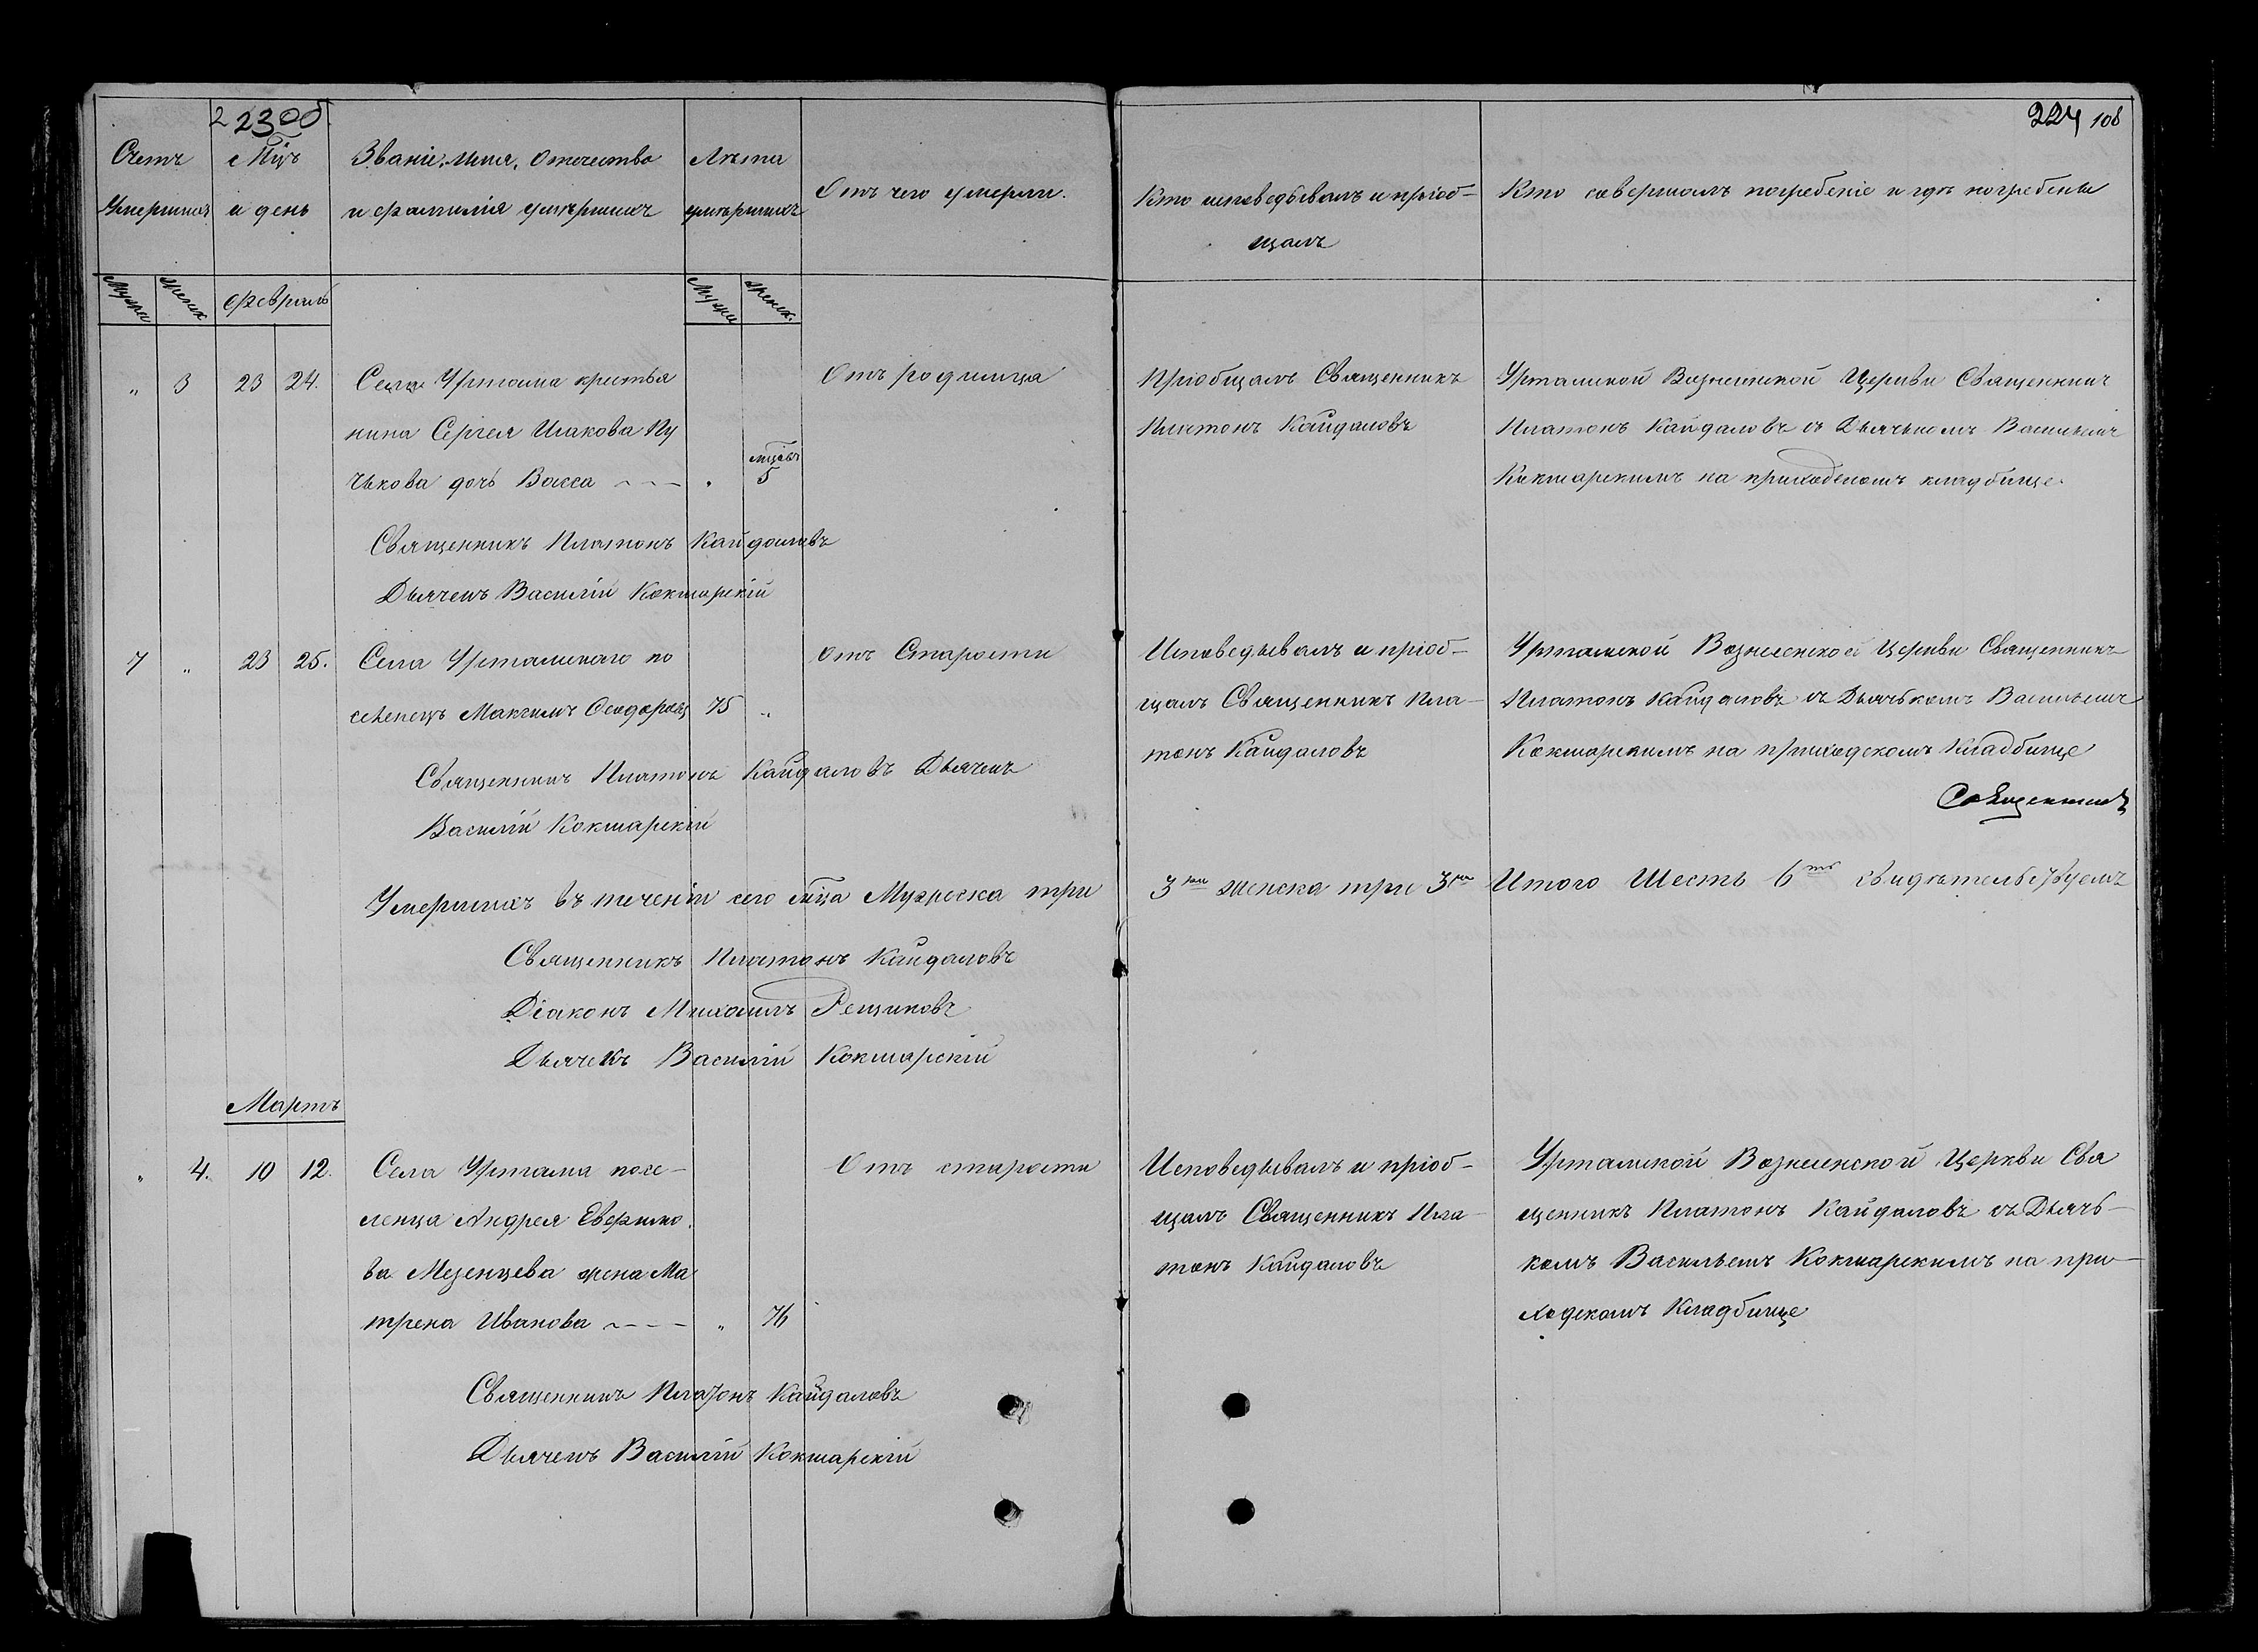 223об
224 108
Счетъ Умершихъ
Мцъ и день
Званіе, имя, отчество и фамилія умершихъ
Лѣта умершихъ
Отъ чего умерли.
Кто исповедывалъ и пріоб-
щалъ
Кто совершалъ погребеніе и гдѣ погребены
Мужск
Женск
Февраль
Мужск
Женск.
„ 3 23 24.
Села Уртама крестья
нина Сергея Исакова Пу
чкова дочь Васса - - - „ мцовъ 5
Отъ родимца
Пріобщалъ Священникъ
Платонъ Кайдаловъ
Уртамской Вознесенской Церкви Священникъ
Платонъ Кайдаловъ съ Дьячькомъ Васильемъ
Кокшарскимъ на приходскомъ кладбище.
Священникъ Платонъ Кайдаловъ
Дьячекъ Василій Кокшарскій
7 „ 23 25.
Села Уртамскаго по
селенецъ Максимъ 75 „
Отъ Старости
Исповедывалъ и пріоб-
щалъ Священникъ Пла-
тонъ Кайдаловъ
Уртамской Вознесенской Церкви Священникъ
Платонъ Кайдаловъ съ Дьячькомъ Васильемъ
Кокшарскимъ на приходскомъ Кладбище
Священникъ Платонъ Кайдаловъ Дьячекъ
Василій Кокшарскій
Священникъ
Умершихъ въ теченіи сего мца Мужеска три 3ри женска три 3ри Итого Шесть 6ть свидѣтельствуемъ
Священникъ Платонъ Кайдаловъ
Діаконъ Михаилъ Рещиковъ
Дьячекъ Василій Кокшарскій
Мартъ
„ 4. 10 12.
Села Уртама посе-
ленца Андрея Евфимо
ва Мезенцева жена Ма
трена Иванова - - - „ 76
Отъ старости
Исповедывалъ и пріоб-
щалъ Священникъ Пла-
тонъ Кайдаловъ
Уртамской Вознесенской Церкви Свя
щенникъ Платонъ Кайдаловъ съ Дьячь-
комъ Васильемъ Кокшарскимъ на при-
ходскомъ Кладбище
Священникъ Платонъ Кайдаловъ
Дьячекъ Василій Кокшарскій